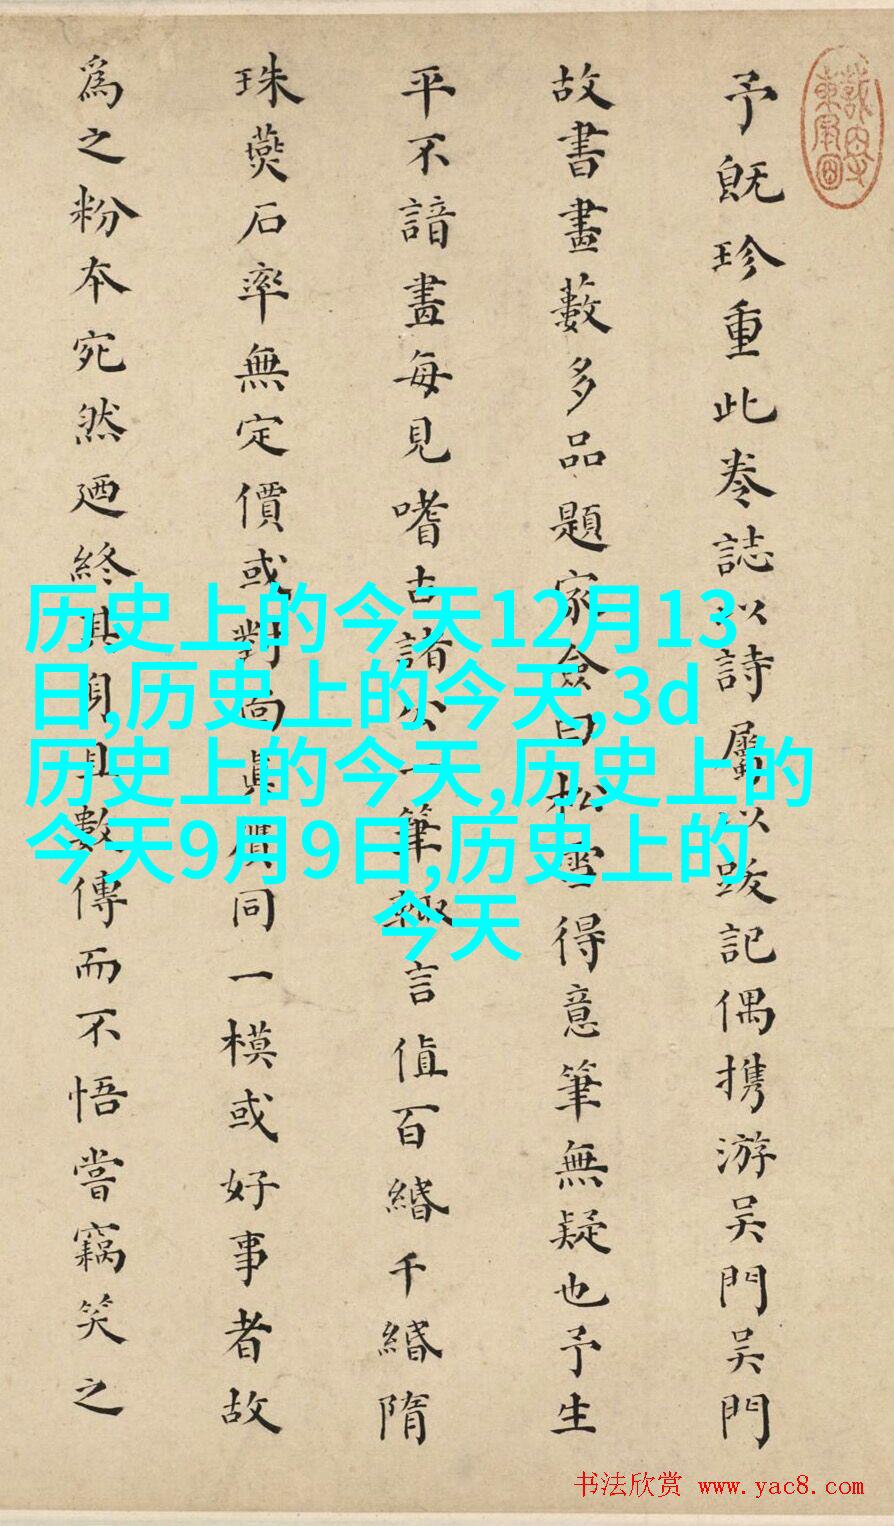 予既珍重此卷誌以詩屬以跋記偶携游吴門吴門
故書畫藪多品題家僉曰松雪得意筆無疑也予生
平不諳畫每見嗜古諸公一筆趣言值百緡千緡隋
珠燕石率無定價或對面真贋同一模或好事者故
為之粉本宛然廼終其身且數傳而不悟嘗竊笑之
历史上的今天12月13
日,历史上的今天,3d
历史上的今天,历史上的
今天9月9日,历史上的
今天
书法欣赏 www.yac8.com